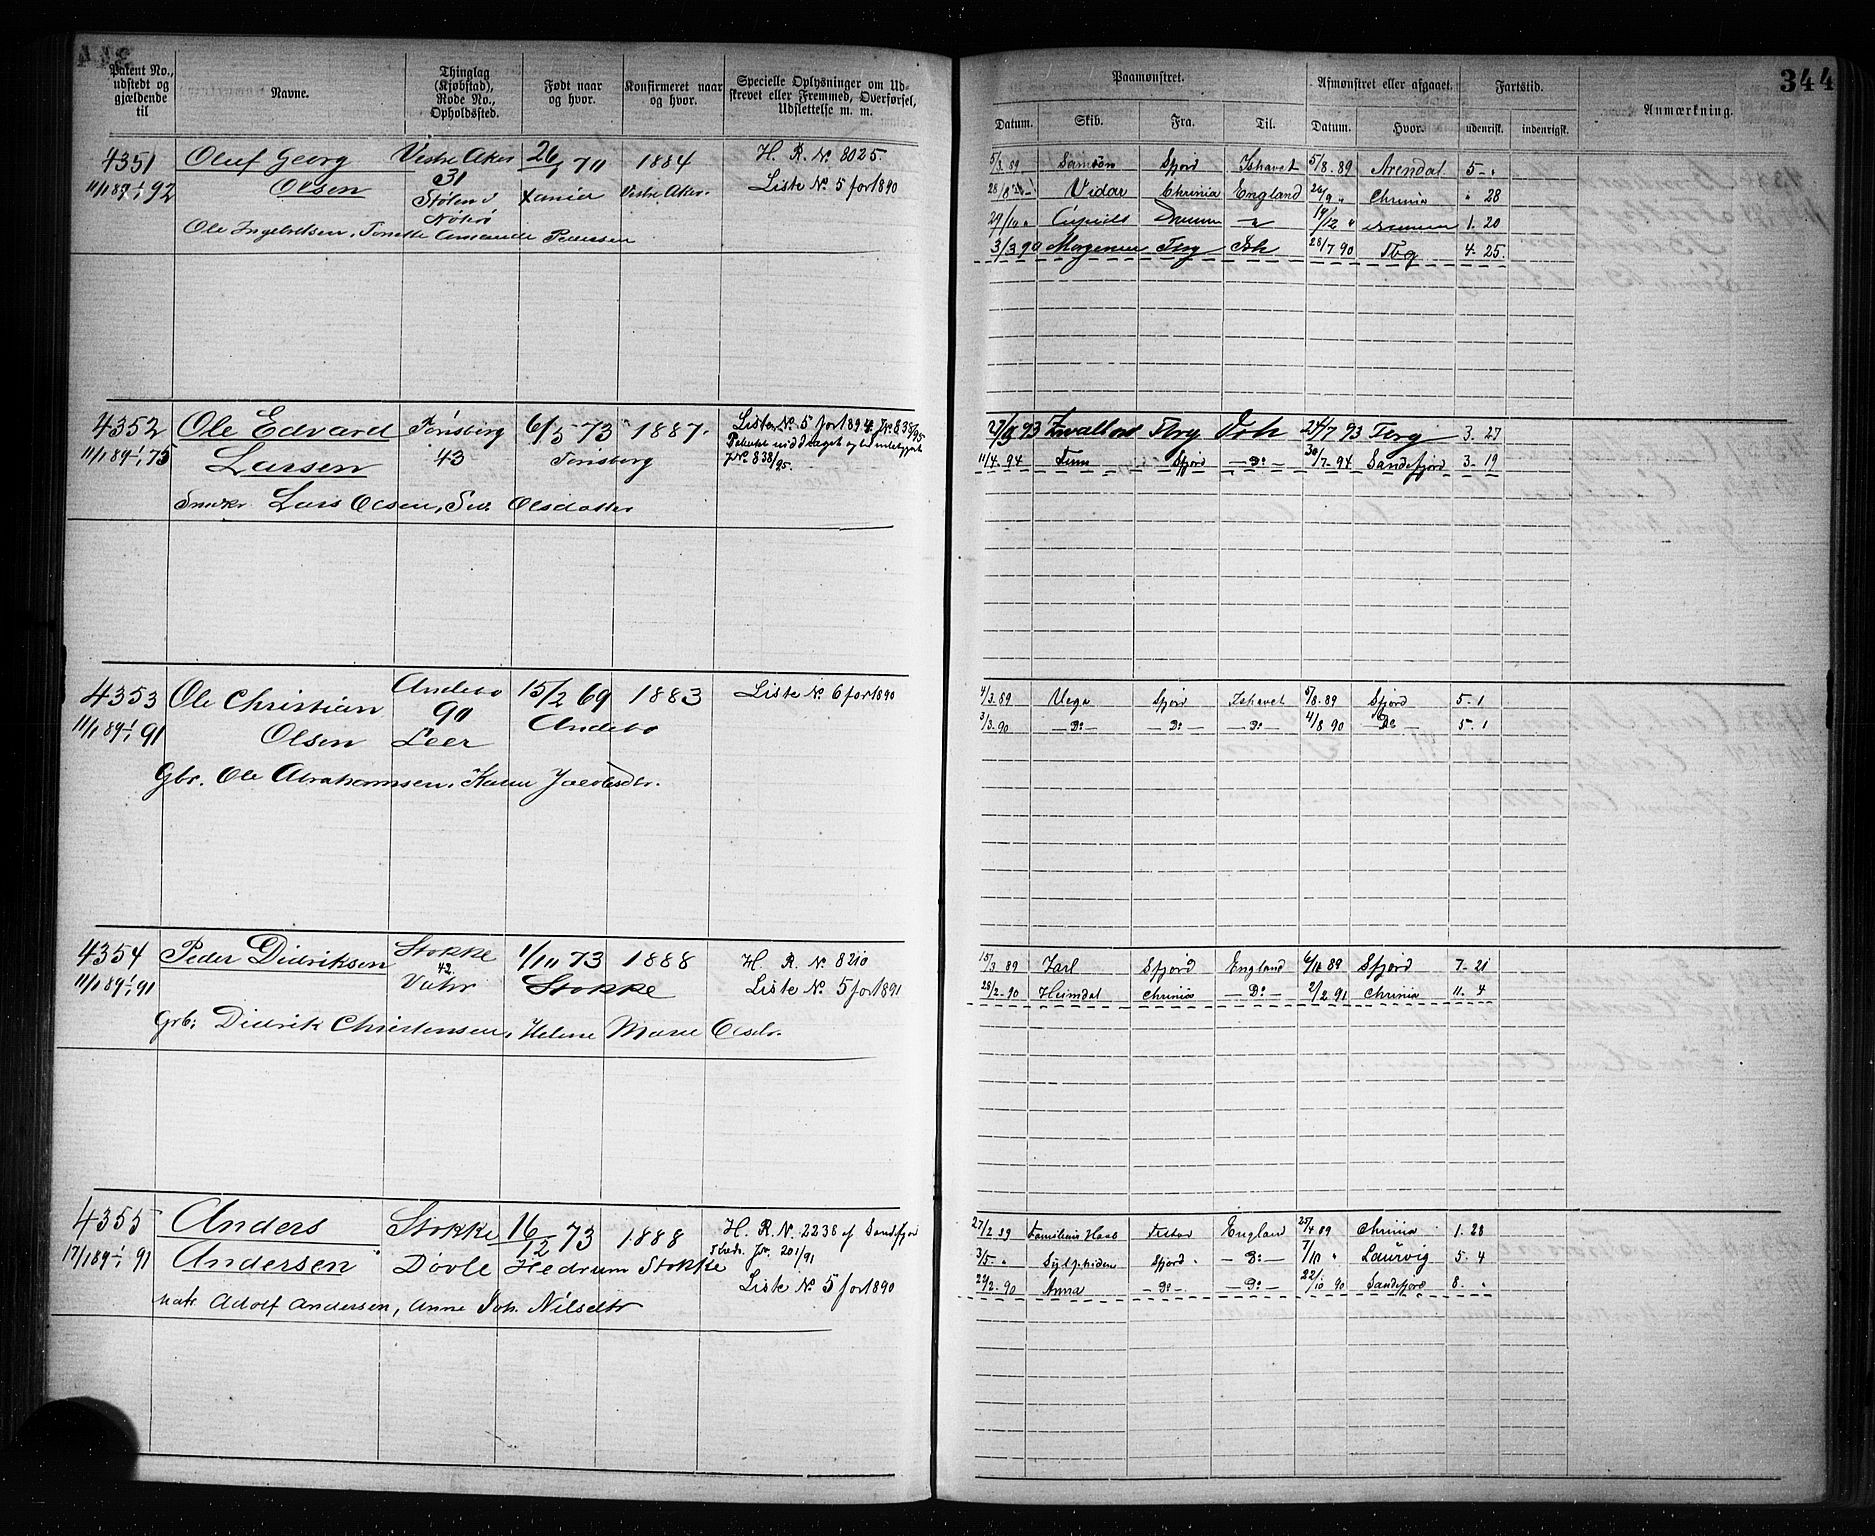 344
Patent No., udstedt og gjældende til
Navne.
Thinglag (Kjøbstad), Rode No., Opholdssted.
Født naar og hvor.
Konfirmeret naar og hvor.
Specielle Oplysninger om Udskrevet eller Fremmed, Overførsel, Udslettelse m. m.
Paamønstret.
Afmønstret eller afgaaet.
Fartstid.
Anmærkning.
Datum. Skib. Fra. Til. Datum. Hvor. udenrigs. indenrigs.
4351 Oluf Georg Vestre Aker 26/ 70 1884 H. R. No. 8025.
11/1 89 1/1 92 Olsen 31 Xania Vestre Aker. Liste No. 5 for 1890
Støten
Nøtrø
Ole Ingebretsen, Tonette Amande Pedersen
5/3 89 Samson Sfjord Ishavet 5/8 89 Arendal 5 - "
28/8 Vidar Chrinia England 26/9 " Chrinia " 28
29/10 " Cupido 19/12 " 1. 20
3/3 90 Magenen Tbrg Ish 28/7 90 Tbg 4 - 25.
4352 Ole Edvard Tønsberg 6/5 73 1887. Liste No. 5 for 1894. J.No. 835/95
11/1 89 1/1 75 Larsen 43 Tønsberg Patentet inddraget og
J.No. 838/95.
Snedkr Lars Olsen, Olsdatter
93 Tbrg Ish 24/7 93 Tbrg 3. 27
11/4. 94 Sfjord - Do - 30/7 - 94 Sandefjord 3 - 19
4353 Ole Christian Andebo 15/2 69 1883 Liste No. 6 for 1890
11/1 89 1/1 91 Olsen 90 Leer Andebo
Gbr. Ole Abrahamsen, Karen Jacobsdtr.
4/3. 89 Vega Sfjord Ishavet 5/8. 89 Sfjord 5 - 1
3/3. 90 - Do - - Do - - Do - 4/8 90 Do - 5 - 1
4354 Peder Didriksen Stokke 1/10 73 1888 H. R. No. 8210
11/1 89 1/1 91 42. Stokke Liste No. 5 for 1891
Grb: Didrik Christensen, Helene Marie Olsdr.
15/3 89 Jarl Sfjord England 6/10 89 Sfjord 7 - 21
28/2 - 90 Heimdal Chrinia - Do - 2/2 91 Chrinia 11. 4
4355 Anders Stokke 16/12 73 1888 H. R. N. 2238 af Sandefjord
17/1 89 1/1 91 Andersen Døvle Hedrum Stokke Jr. 201/91
Liste No. 5 for 1890
Matr. Adolf Andersen, Anne Joh. Nilsdtr
27/2 89 England 25/4 89 Chrinia 1. 28
3/5 - " Sylphiden Sfjord - Do - 7/10 " Laurvig 5. 4
24/2. 90 Anna - Do - - Do - 22/10 90 Sandefjord 8. "